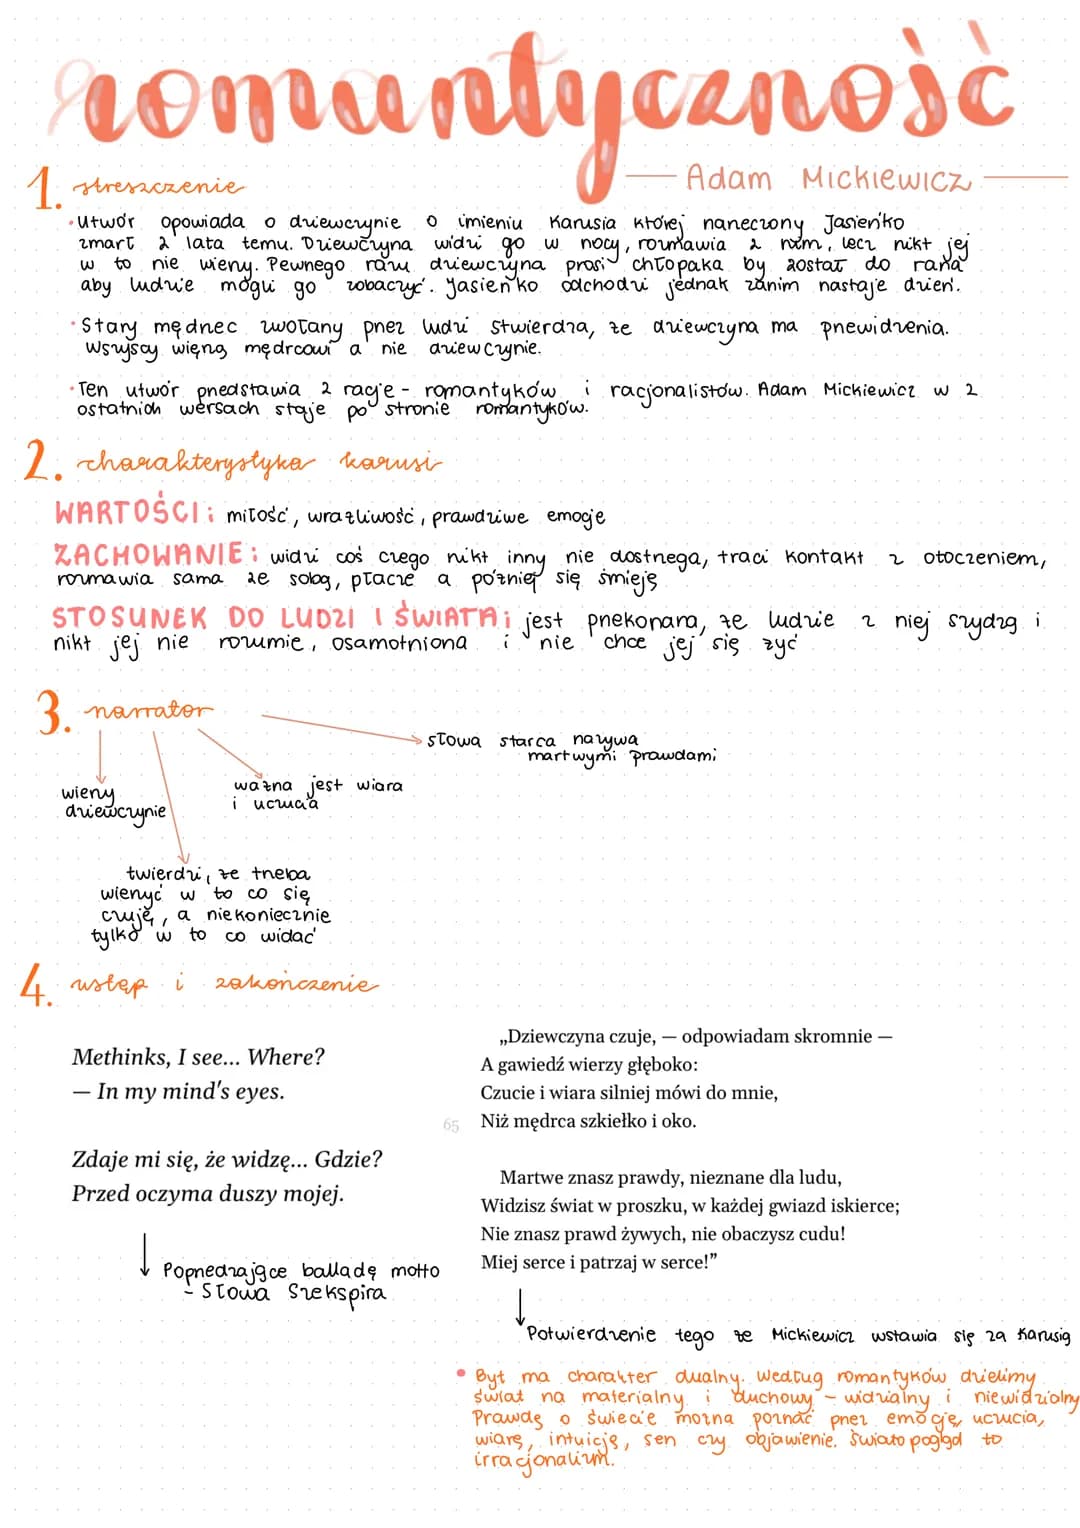 romantyczność
Adam Mickiewicz
1. streszczenie
• Utwór opowiada o dziewczynie o imieniu Karusia której narzeczony Jasieńko
zmarł 2 lata temu. Dziewczyna widzi go w nocy, rozmawia z nim, lecz nikt jej
w to nie wierzy. Pewnego razu dziewczyna prosi chłopaka by został do rana
aby ludzie mogli go zobaczyć. Jasieńko odchodzi jednak zanim nastaje dzień.
• Stary mędrzec zwołany przez ludzi stwierdza, że dziewczyna ma przewidzenia.
Wszyscy wierzą mędrcowi a nie dziewczynie.
• Ten utwór przedstawia 2 racje - romantyków i racjonalistów. Adam Mickiewicz w 2
ostatnich wersach staje po stronie romantyków.
2. charakterystyka karusi
WARTOŚCI: miłość, wrażliwość, prawdziwe emocje
ZACHOWANIE: widzi coś czego nikt inny nie dostrzega, traci kontakt z otoczeniem,
rozmawia sama ze sobą, płacze a później się śmieje
STOSUNEK DO LUDZI I ŚWIATA: jest przekonana, że ludzie z niej szydzą i
nikt jej nie rozumie, osamotniona i nie chce jej się żyć
3. narrator
słowa starca nazywa
martwymi prawdami
wierzy
dziewczynie
ważna jest wiara
i uczucia
twierdzi, że trzeba
wierzyć w to co się
czuje, a niekoniecznie
tylko w to co widać
4. wstęp i zakończenie
Methinks, I see... Where?
— In my mind's eyes.
Zdaje mi się, że widzę... Gdzie?
Przed oczyma duszy mojej.
Poprzedzające balladę motto
- Słowa Szekspira
„Dziewczyna czuje, — odpowiadam skromnie —
A gawiedź wierzy głęboko:
Czucie i wiara silniej mówi do mnie,
65 Niż mędrca szkiełko i oko.
Martwe znasz prawdy, nieznane dla ludu,
Widzisz świat w proszku, w każdej gwiazd iskierce;
Nie znasz prawd żywych, nie obaczysz cudu!
Miej serce i patrzaj w serce!”
Potwierdzenie tego że Mickiewicz wstawia się za Karusią
• Byt ma charakter dualny. Według romantyków dzielimy
świat na materialny i duchowy - widzialny i niewidzialny
Prawdę o świecie można poznać przez emocje, uczucia,
wiarę, intuicję, sen czy objawienie. Światopogląd to
irracjonalizm.